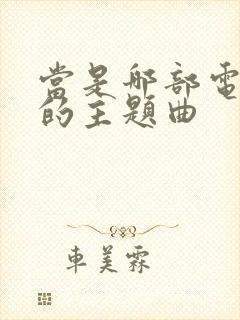 當是那部電
的主題曲
車美霖